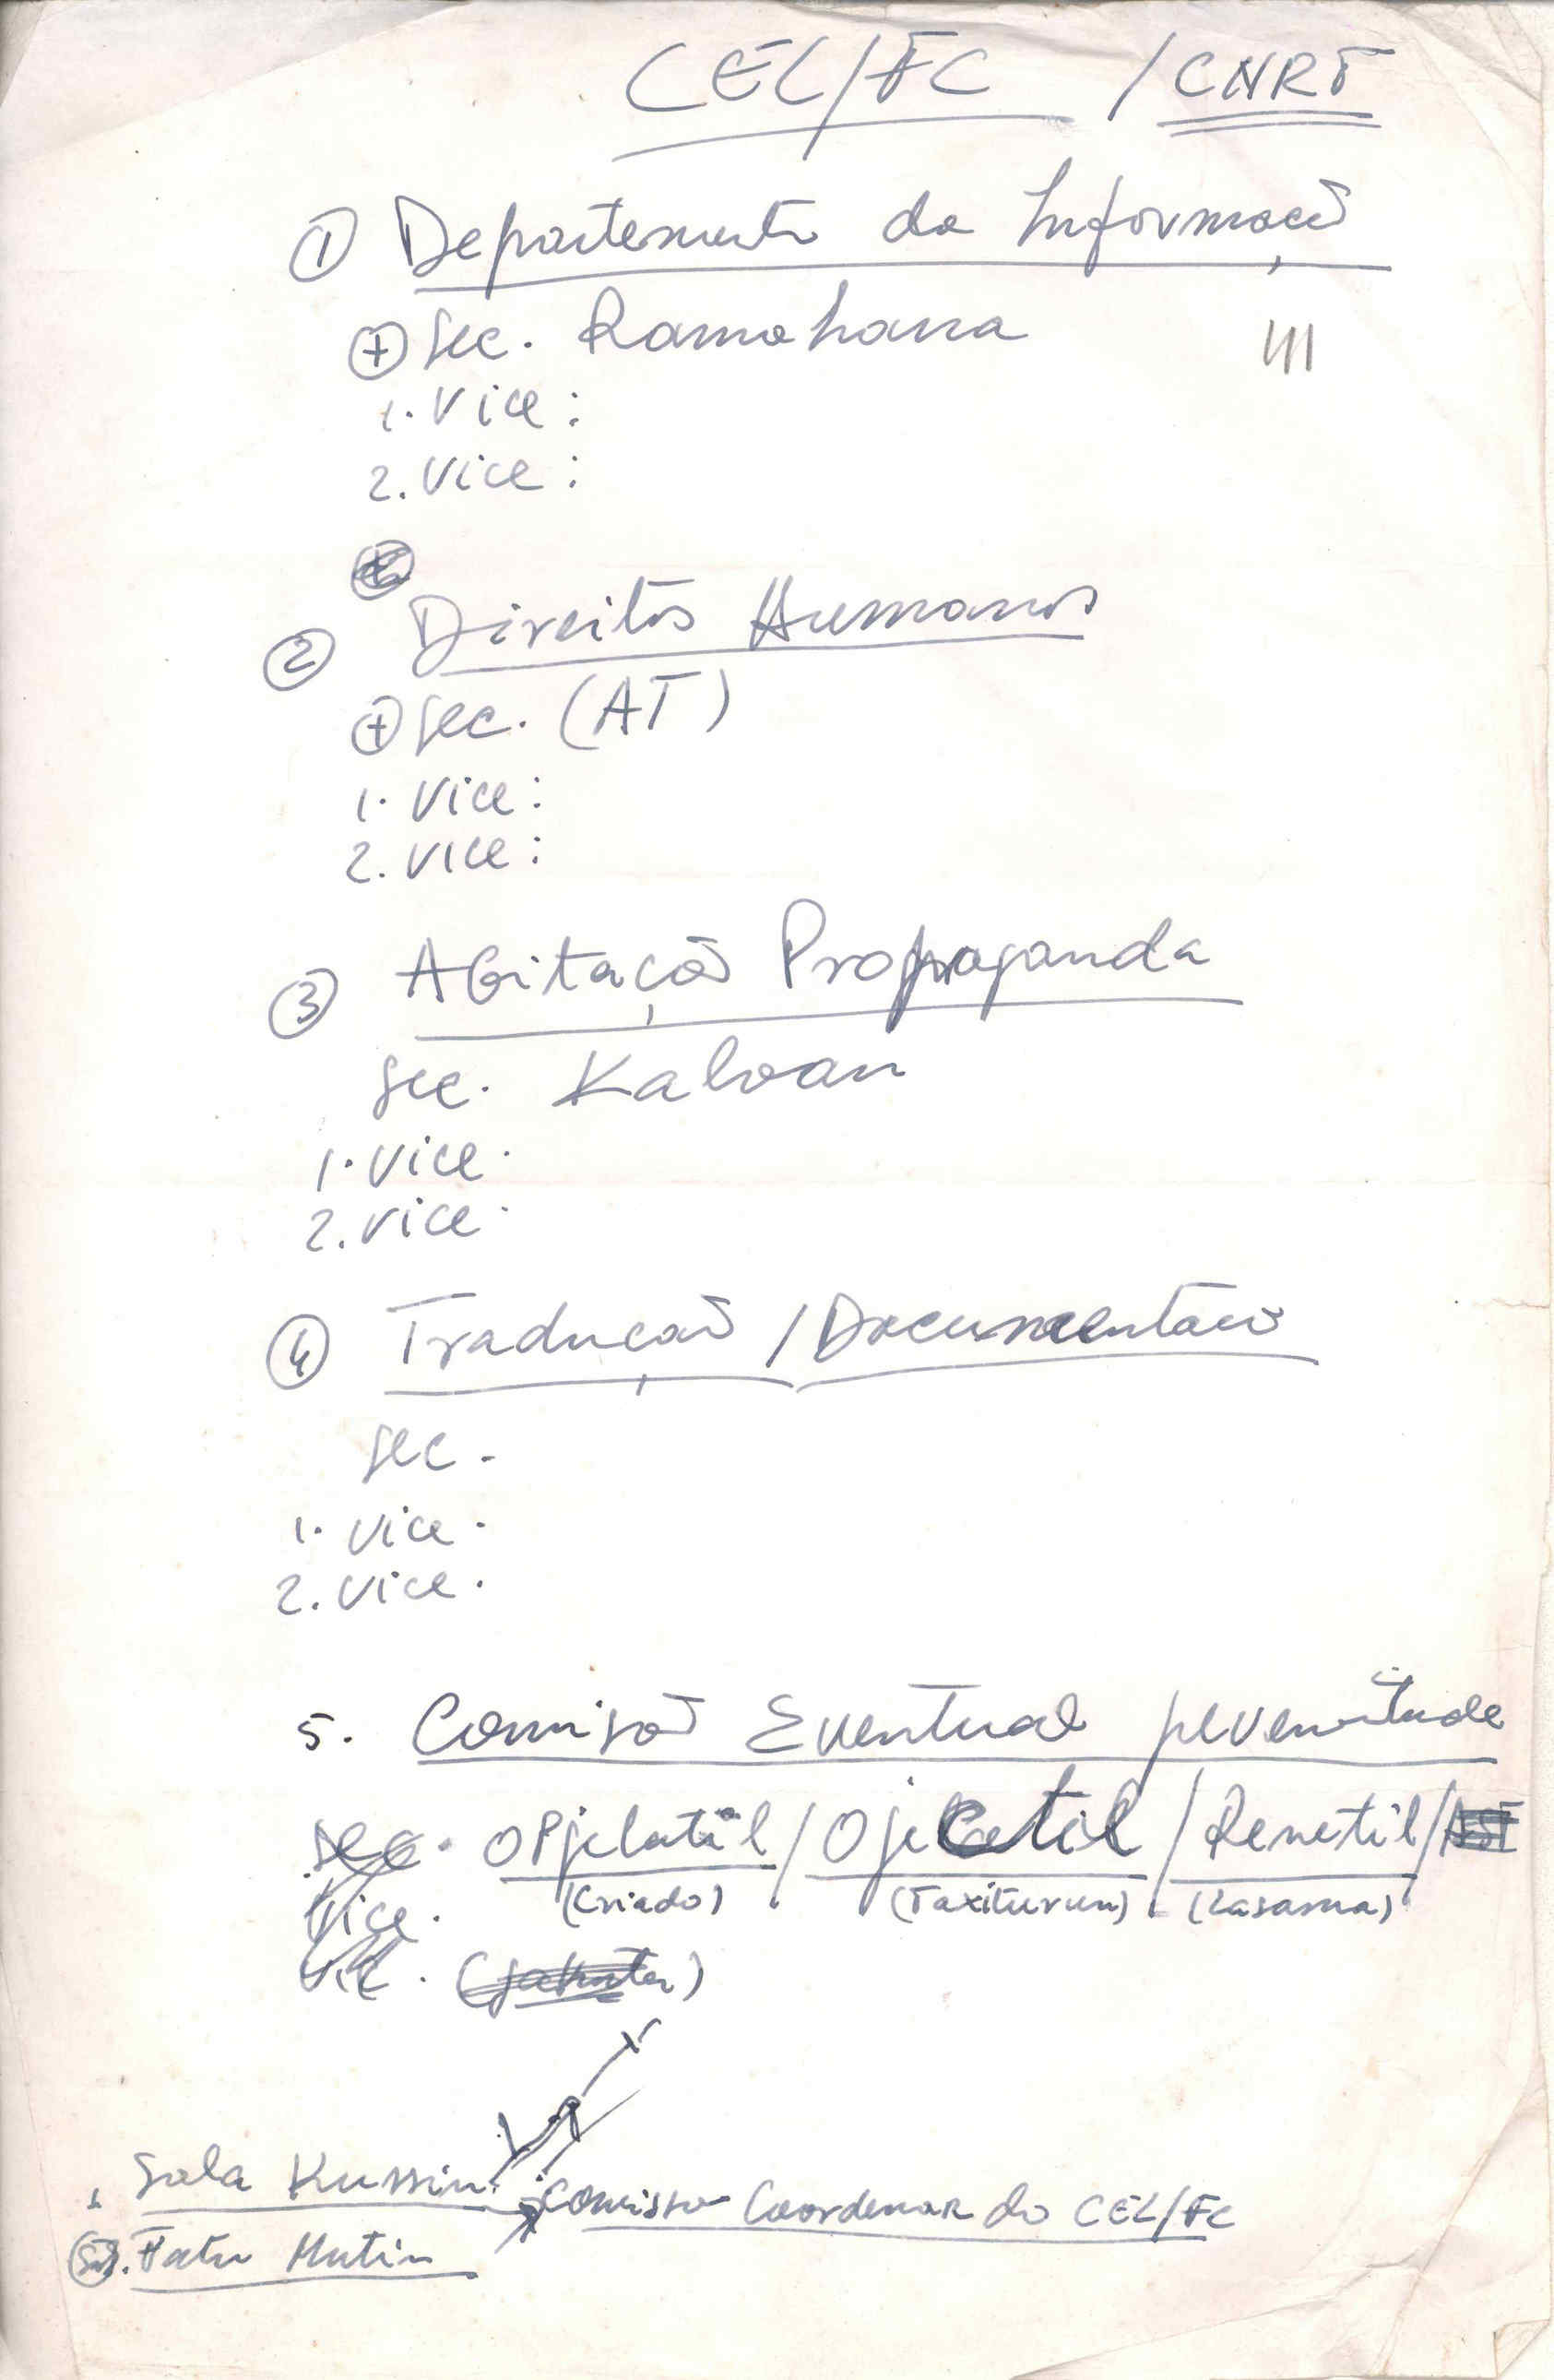 CEL/FC / CNRT
① Departamento da Informação
⊕ Sec. Ramahana
1. Vice :
2. Vice :
② Direitos Humanos
⊕ Sec. (AT)
1. Vice :
2. Vice :
③ AGitação Propaganda
Sec. Kaloan
1. Vice.
2. Vice.
④ Tradução / Documentaõ
Sec.
1. Vice.
2. Vice.
5. Comisaõ Eventual
Sec. OPjelatil / Ojecetil / Renetil /
Vice. (Criado) (Taxiturun) (Lasama)
Vic.
1. Sala Kussin
Comissão Coordenar do CEL/FC
Fatu Mutin